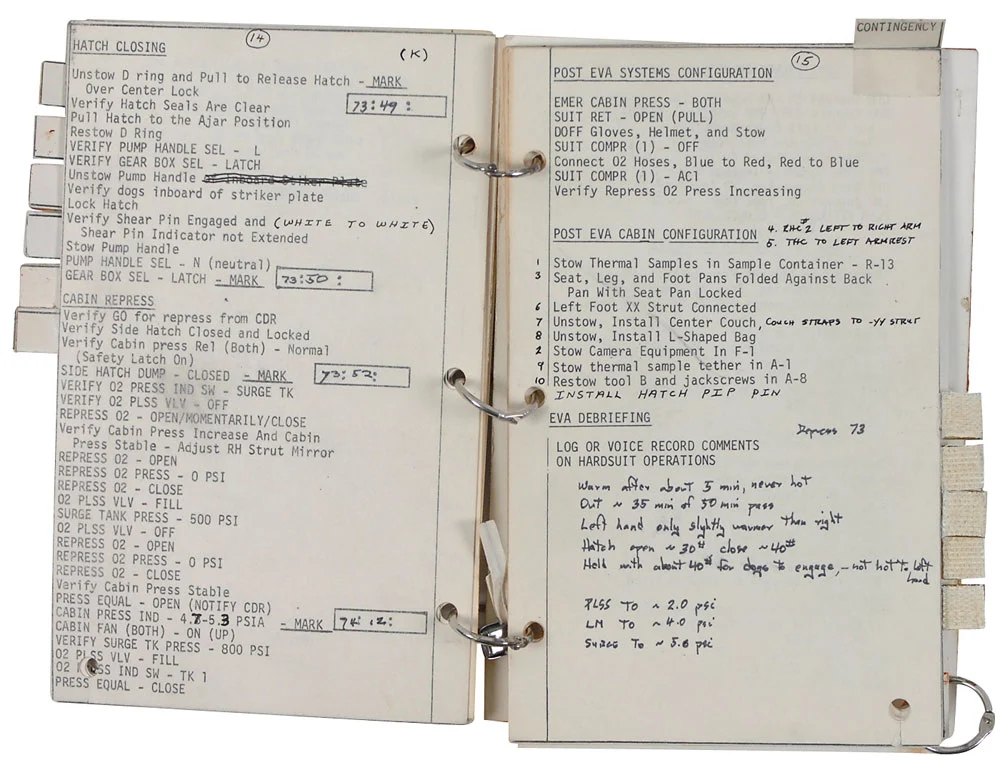 14
HATCH CLOSING
(K)
Unstow D ring and Pull to Release Hatch - MARK
Over Center Lock
Verify Hatch Seals Are Clear
73:49:
Pull Hatch to the Ajar Position
Restow D Ring
VERIFY PUMP HANDLE SEL - L
VERIFY GEAR BOX SEL - LATCH
Unstow Pump Handle at Inboard Striker Plate
Verify dogs inboard of striker plate
Lock Hatch
Verify Shear Pin Engaged and (WHITE TO WHITE)
Shear Pin Indicator not Extended
Stow Pump Handle
PUMP HANDLE SEL - N (neutral)
GEAR BOX SEL - LATCH - MARK 73:50:
CABIN REPRESS
Verify GO for repress from CDR
Verify Side Hatch Closed and Locked
Verify Cabin press Rel (Both) - Normal
(Safety Latch On)
SIDE HATCH DUMP - CLOSED - MARK 73:52:
VERIFY O2 PRESS IND SW - SURGE TK
VERIFY O2 PLSS VLV - OFF
REPRESS O2 - OPEN/MOMENTARILY/CLOSE
Verify Cabin Press Increase And Cabin
Press Stable - Adjust RH Strut Mirror
REPRESS O2 - OPEN
REPRESS O2 PRESS - 0 PSI
REPRESS O2 - CLOSE
O2 PLSS VLV - FILL
SURGE TANK PRESS - 500 PSI
O2 PLSS VLV - OFF
REPRESS O2 - OPEN
REPRESS O2 PRESS - 0 PSI
REPRESS O2 - CLOSE
Verify Cabin Press Stable
PRESS EQUAL - OPEN (NOTIFY CDR)
CABIN PRESS IND - 4.7-5.3 PSIA - MARK 74:12:
CABIN FAN (BOTH) - ON (UP)
VERIFY SURGE TK PRESS - 800 PSI
O2 PLSS VLV - FILL
O2 PRESS IND SW - TK 1
PRESS EQUAL - CLOSE
CONTINGENCY
15
POST EVA SYSTEMS CONFIGURATION
EMER CABIN PRESS - BOTH
SUIT RET - OPEN (PULL)
DOFF Gloves, Helmet, and Stow
SUIT COMPR (1) - OFF
Connect O2 Hoses, Blue to Red, Red to Blue
SUIT COMPR (1) - AC1
Verify Repress O2 Press Increasing
4. RHC #2 LEFT TO RIGHT ARM
POST EVA CABIN CONFIGURATION 5. THC TO LEFT ARMREST
1 Stow Thermal Samples in Sample Container - R-13
3 Seat, Leg, and Foot Pans Folded Against Back
Pan With Seat Pan Locked
6 Left Foot XX Strut Connected
7 Unstow, Install Center Couch, COUCH STRAPS TO -YY STRUT
8 Unstow, Install L-Shaped Bag
2 Stow Camera Equipment In F-1
9 Stow thermal sample tether in A-1
10 Restow tool B and jackscrews in A-8
INSTALL HATCH PIP PIN
EVA DEBRIEFING
Repress 73
LOG OR VOICE RECORD COMMENTS
ON HARDSUIT OPERATIONS
Warm after about 5 min, never hot
Out ~ 35 min of 50 min pass
Left hand only slightly warmer than right
Hatch open ~ 30# close ~ 40#
Held with about 40# for dogs to engage, - not hot to left
hand
PLSS To ~ 2.0 psi
LM To ~ 4.0 psi
Surge To ~ 5.0 psi